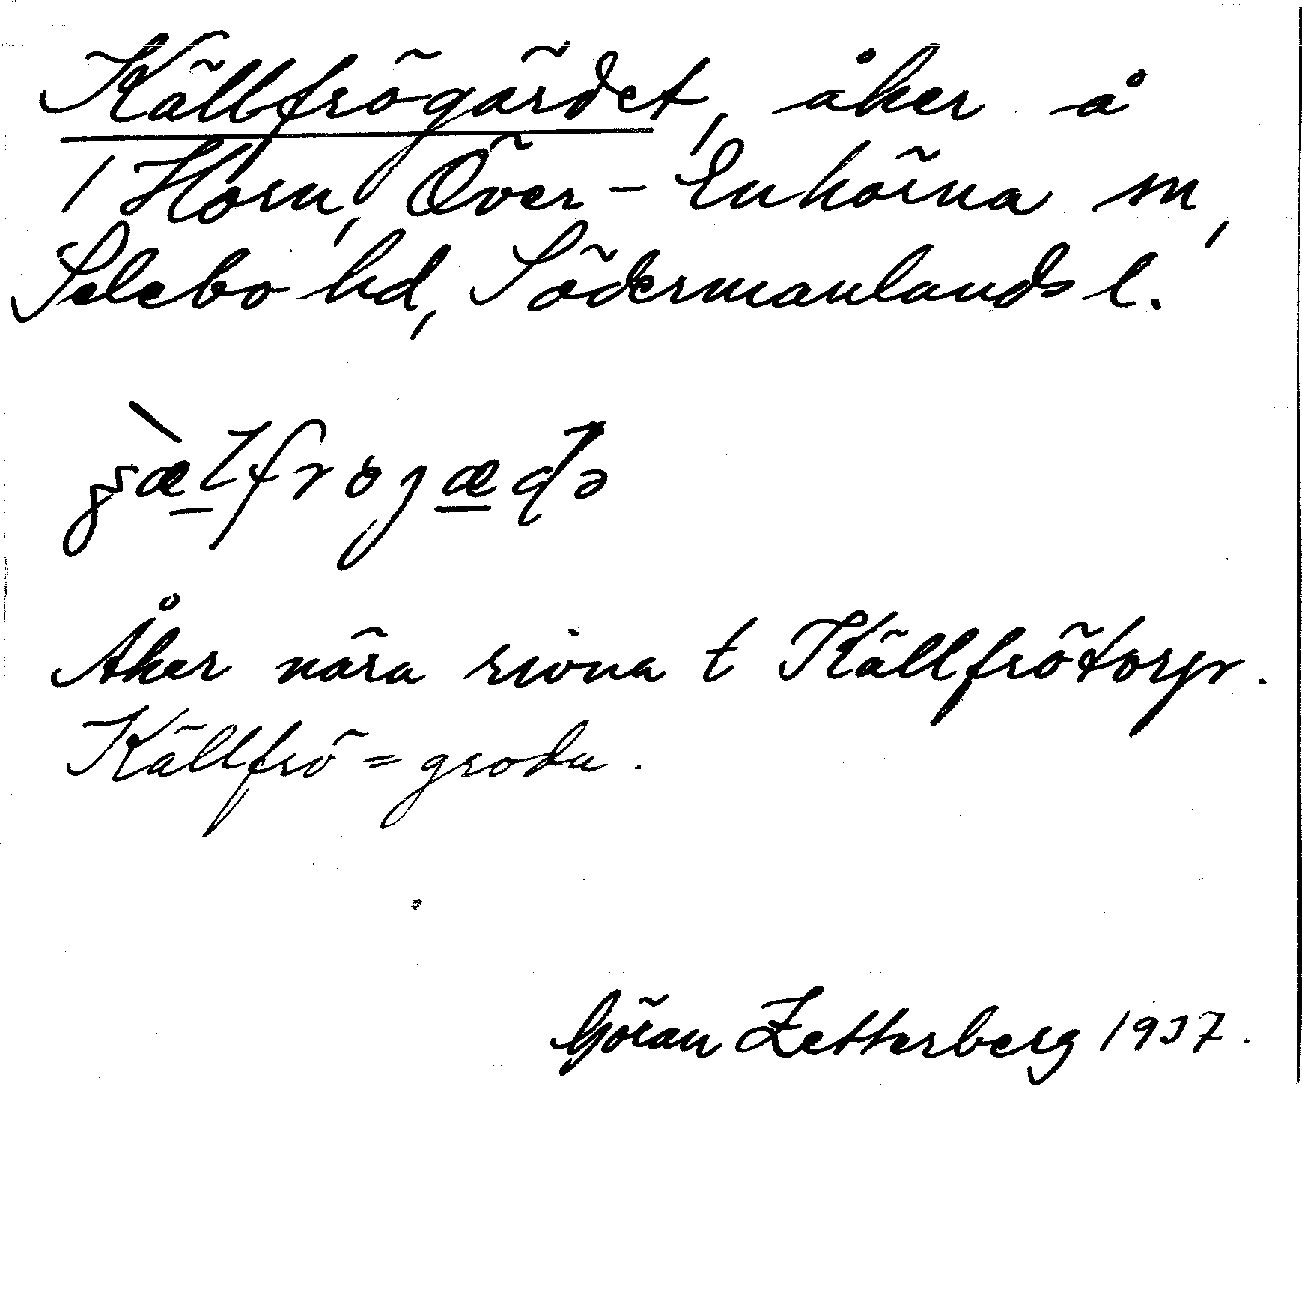 Källfrögärdet, åker å
1 Horn, Över-Enhörna sn,
Selebo hd, Södermanlands l.
Åker nära rivna t Källfrötorp.
Källfrö = groda.
Göran Zetterberg 1937.